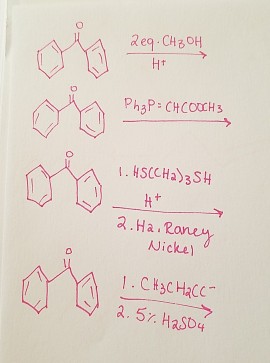 O
2eq. CH3OH
H+
O
Ph3P=CHCOOCH3
O
1. HS(CH2)3SH
H+
2. H2, Raney
Nickel
O
1. CH3CH2CC-
2. 5% H2SO4